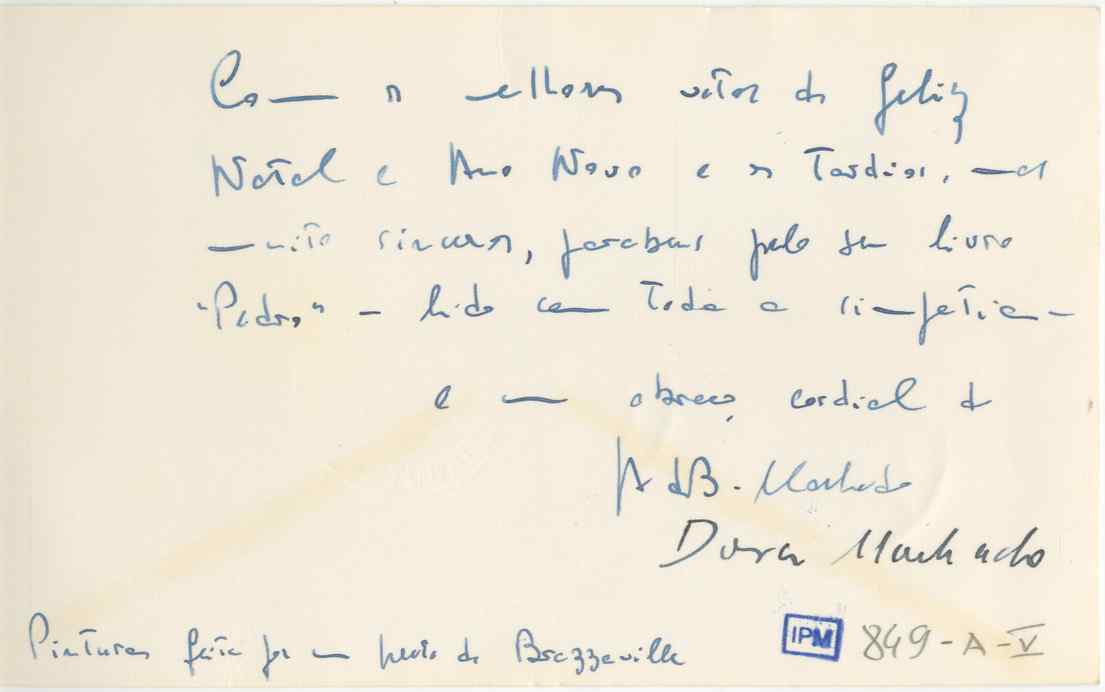 Com os melhores votos de feliz
Natal e Ano Novo e os tardios, mas
muito sinceros, parabens pelo seu livro
"Pedro" - lido com toda a simpatia -
e um abraço cordial do
A de B. Machado
Dora Machado
Pinturas feita por um preto de Brazzaville
IPM 849-A-V